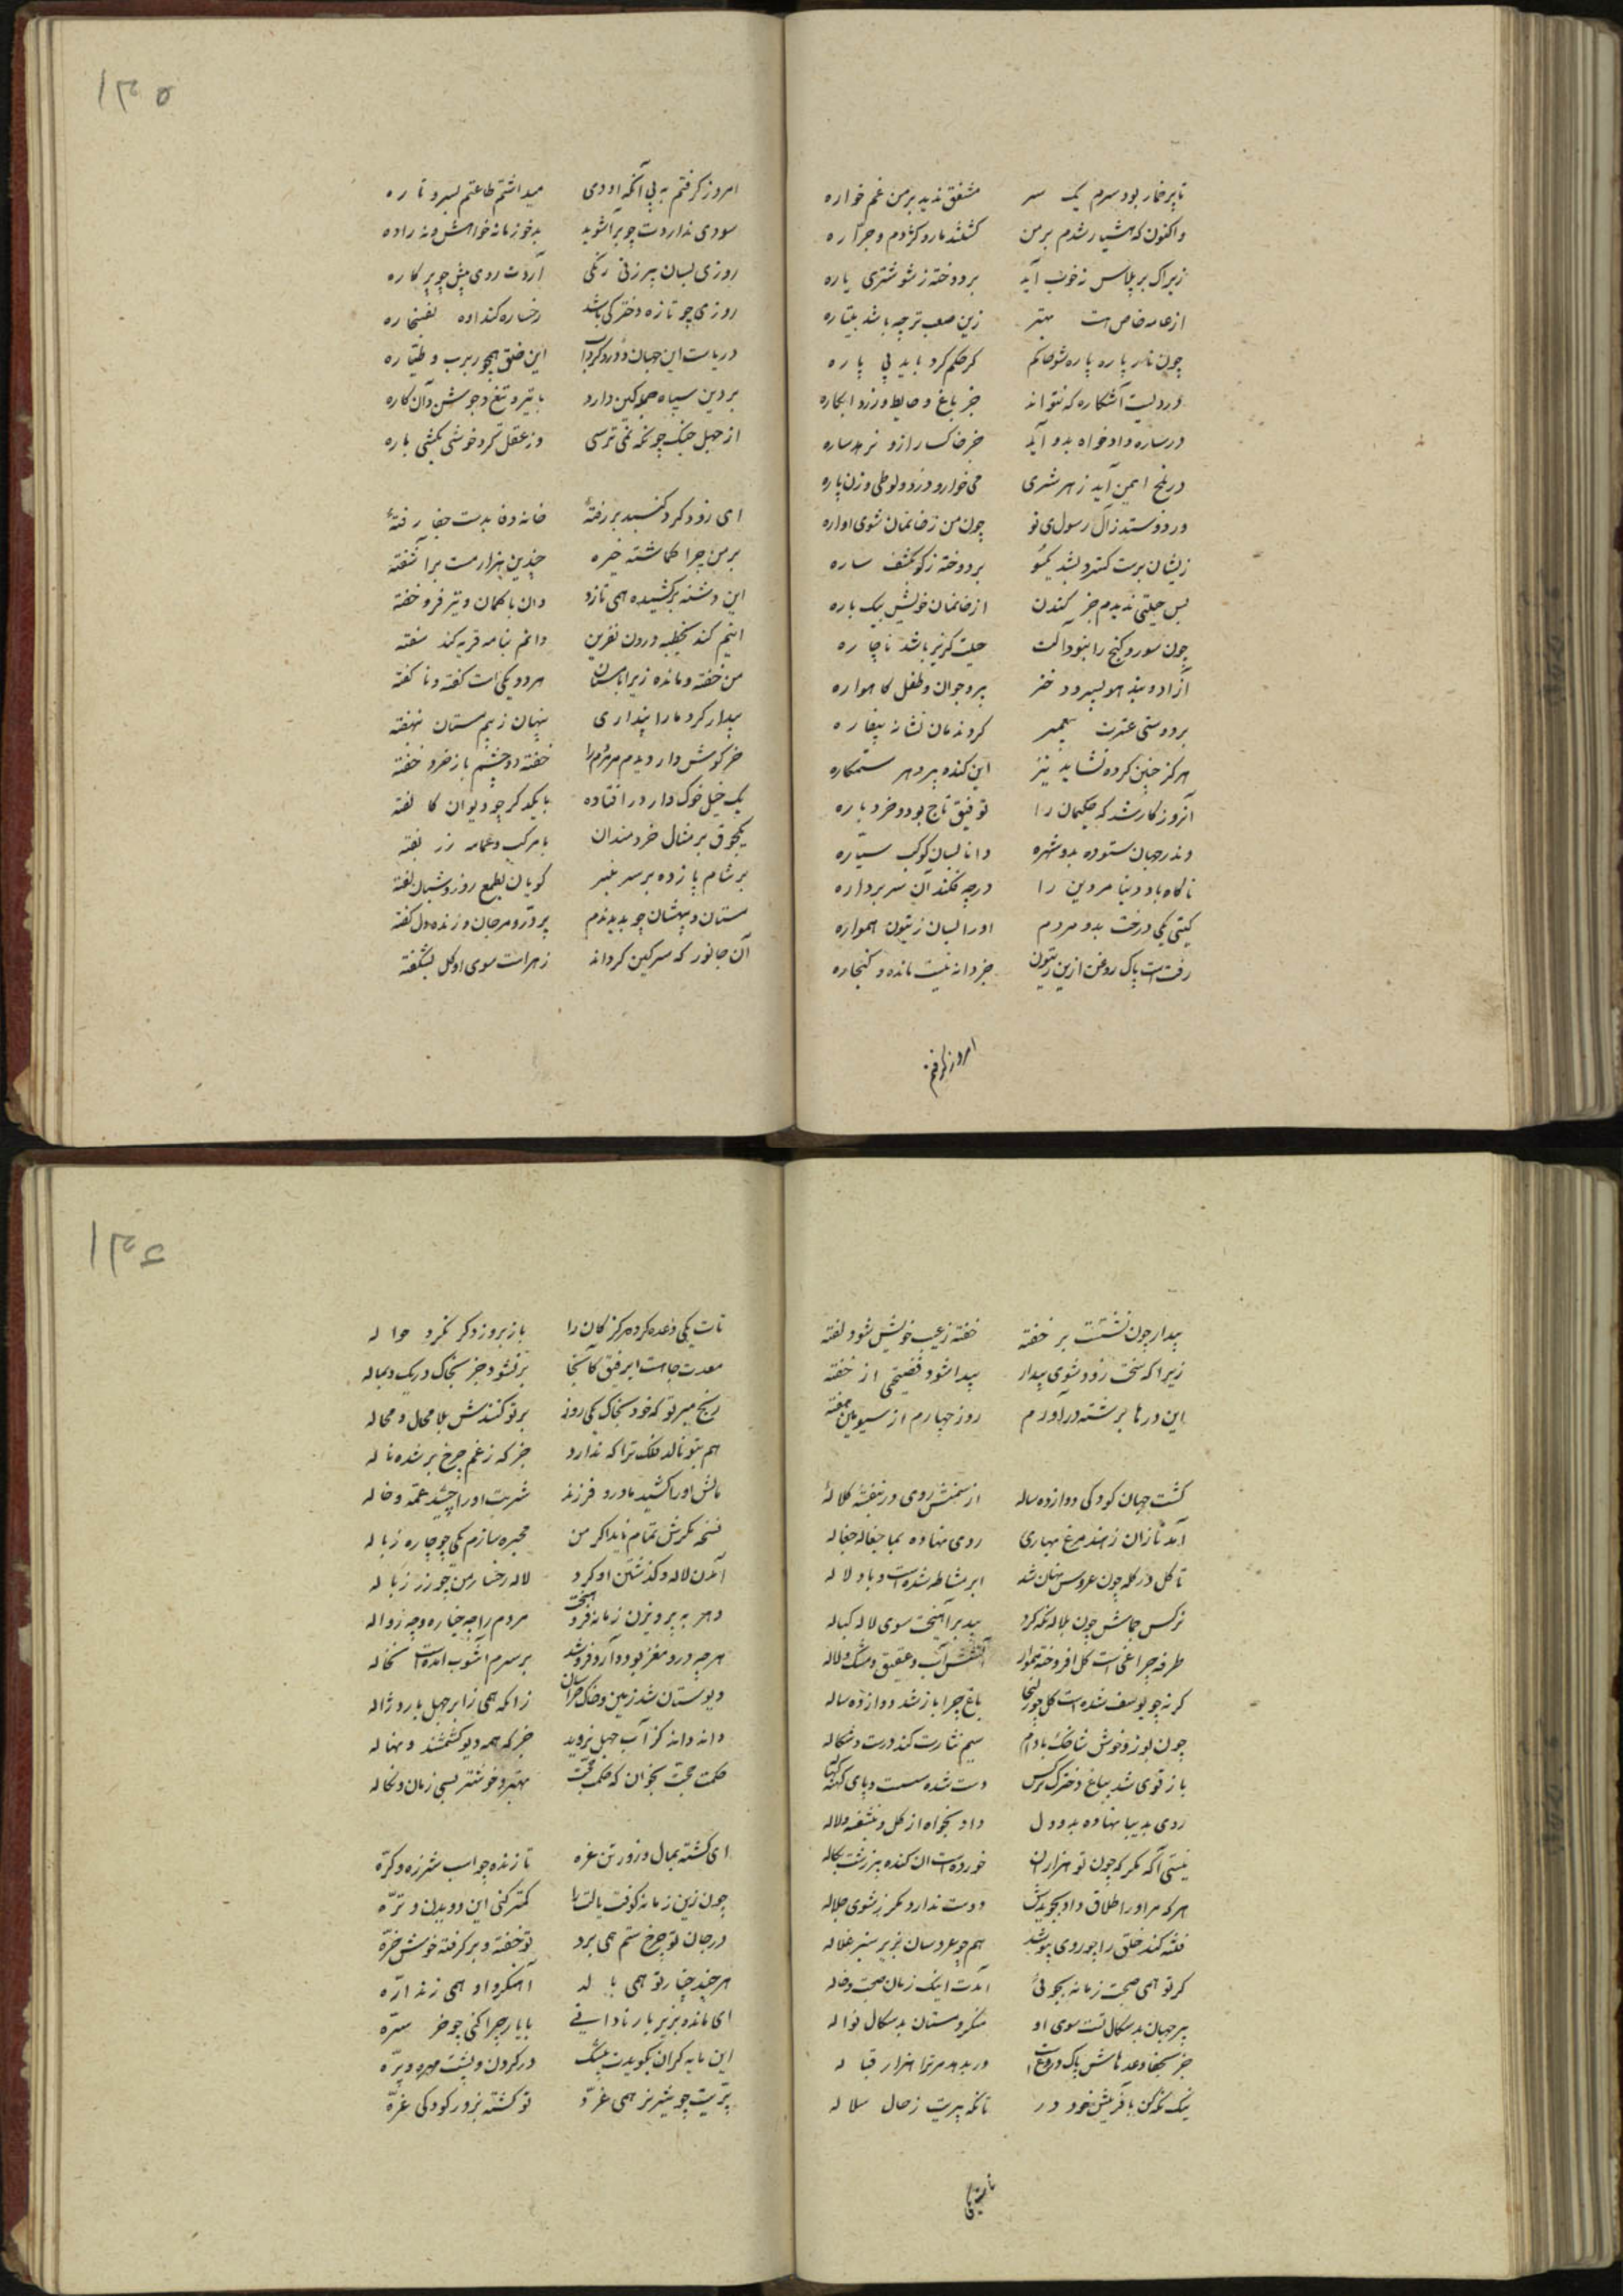 تا پرخمار بود سرم یک سر مشفق ندید بر من غم خواره
واکنون که هشیار شدم بر من کشتند مار و کژدم و جراره
زیراک بر پلاس نه خوب آید بر دوخته ز شوشتری پاره
از عامه خاص است بتر زین صعب‌تر چه باشد پتیاره
چون نار پاره پاره شود حاکم گر حکم کرد باید بی پاره
دزدیست آشکاره که نتواند جز باغ و حایط و رز و ابکاره
ور ساره دادخواه بدو آید جز خاکسار ازو نرهد ساره
در بلخ ایمن آید ز هر شری می‌خوار و دزد و لوطی و زن باره
ور دوستدار آل رسولی تو چون من ز خانمان شوی آواره
زیشان برست کند و بشد یکسو بر دوخته ز گوی کشف ساره
بس حیلتی ندیدم جز کندن از خانمان خویش بیک باره
چون سور و گنج را بنود آلت حیلت گریز باشد ناچاره
آزاد و بنده و پسر و دختر پیر و جوان و طفل گاهواره
بر دوستی عترت پیغمبر کردندمان نشانه بیغاره
هرگز چنین گروه نشاید نیز این گنده پیر دهر ستمکاره
آنروز کار شد که حکیمان را توفیق تاج بود و خرد یاره
وندر جهان ستوده بدو شهره دانا بسان کوکب سیاره
ناگاه باد دنیا مر دین را در چه فکند از سر پرواره
گیتی یکی درخت بد و مردم او را بسان زیتون همواره
رفت است پاک روغن ازین زیتون جز دانه نیست مانده و کنجاره
امروز گرفتم
۱۲۵
امروز گرفتم به پی آنکه او دی میداشتم طاعتم بسر و تاره
سودی نداردت چو برآشوبد بدخو زمانه خواهش و نه زاره
روزی بسان پیر زنی زنگی آردت روی پیش چو بر کاره
روزی چو تازه دخترکی باشد رخساره کند اوه بغنجاره
دریاست این جهان و درو گردان این خلق همچو زبزب و طیاره
بر دین سپاه جهل کمین دارد با تیر و تیغ و جوشن و آن کاره
از جهل جنگ چونکه نمی ترسی وز عقل گرد خوشی بکشی باره
ای زود گرد گنبد بر رفته خانه وفا بدست جفا رفته
بر من چرا گماشته خیره چندین هزار مست بر آشفته
این دشنه برکشیده همی تازد و آن با کمان و تیر فرو خفته
اینم کند بخطبه درون نفرین وانم بنامه فریه کند سفته
من خفته و مانده زیرا با مستان هر دو یکی است گفته و ناگفته
بیدار کرد ما را پنداری پنهان ز بیم مستان بنهفته
خرگوش وار دیدم مردم را خفته دو چشم باز خرد خفته
یک خیل خوک وار در افتاده با یکدگر چو دیوان کالفته
یکجوق بر مثال خردمندان با مرکب و عمامه زر بفته
بر شام پا زده بر سر منبر گویان بطمع روز و شبان لفته
مستان و بیهشان چو بدیدندم پر در و مرجان و زنده دل گفته
آن جانور که سرگین گرداند زهر است سوی او گل بشکفته
بیدار چون نشست بر خفته خفته ز عیب خویش شود لفته
زیرا که سخت زود شوی بیدار پیدا شود فضیحی از خفته
این درها برشته در آوردم روز چهارم از سیوم هفته
گشت جهان کودکی دوازده ساله از سمنش روی و ز بنفشه کلاله
آمد تازان ز هند مرغ بهاری روی نهاده بما جغاله جغاله
تا گل در کله چون عروس نهان شد ابر مشاطه شد است و باد دلاله
نرگس جماش چون بلاله نگه کرد بید برآهیخت سوی لاله کباله
طرفه چراغی است گل افروخته هموار آتشش آب و عقیق و مشک و لاله
گرنه چو یوسف شده است گل چو زلیخا باغ چرا باز شد دوازده ساله
چون بوزد خوش نسیم شاخک بادام سیم نثارت کند درست و شکاله
باز قوی شد بباغ دخترک نرگس دست شده سست و پای گشته کناله
روی بدنیا نهاده بدو دل داد بخواه از گل و بنفشه و لاله
نیستی آگه مگر که چون تو هزاران خورده است این گنده پیر زشت نکاله
هر که مر او را طلاق داد بجویدش دوست ندارد مگر ز شوی حلاله
فتنه کند خلق را چو روی بپوشد همچو عروسان بزیر سبز غلاله
گر تو همی صحبت زمانه بجوئی آمدت اینک زمان صحبت و حاله
پیر جهان بدسگال تست سوی او منگر و مستان بدسگال نواله
جز بجفا وعدهاش پاک دروغ است ور بدهد مر ترا هزار قباله
نیک نگه کن بآفرینش خود در تات نگه پیریت ز حال سلاله
تات یکی
۱۲۶
تات یکی وعده کرد هرگز کان را باز بروز دگر نکرد حواله
معدت جاهت ای رفیق کانجا پر نشود جز بخاک و ریک دهاله
رنج مبر تو که خود بخاک یکی روز بر تو کنندش بلا محال و محاله
هم بتو نالد فلک ترا که ندارد جز که ز غم چرخ بر شده ناله
مالش او را کشید مادر و فرزند شربت او را چشید عمه و خاله
نسخه مکرش تمام ناید اگر من محبره سازم یکی چو چاره زباله
آمدن لاله و گذشتن او کرد لاله رخسار من چو زرد زباله
دهر به پرویزن زمانه فرو بیخت مردم را چه خیاره و چه رذاله
هرچه درو مغز بود و آرد فرو شد بر سرم آشوب آمده است نخاله
دیوستان شد زمین و خاک خراسان زانکه همی ز ابر جهل بارد ژاله
دانه دانه کز آب جهل نروید جز که همه دیو کشتمند و نهاله
حکمت حجت بخوان که حکمت حجت بهتر و خوشتر بسی زمان و نخاله
ای گشته بمال و زور تن غره تا زنده چو اسب شرزه و کره
چون زین زمانه گوفت یالت را کمتر کنی این دویدن و تره
در جان تو چرخ ستم همی برد تو خفته و بر گرفته خوش خره
هر چند چنار تو همی بالد آهنگر و او همی زند اره
ای مانده بزیر بار نادانی با یار چرا کنی چو خر سره
این مایه گران نگویدت بیشک در گردن و پشت مهره و پره
پیریت چو شیر نر همی غرد تو گشته بزور کودکی غره